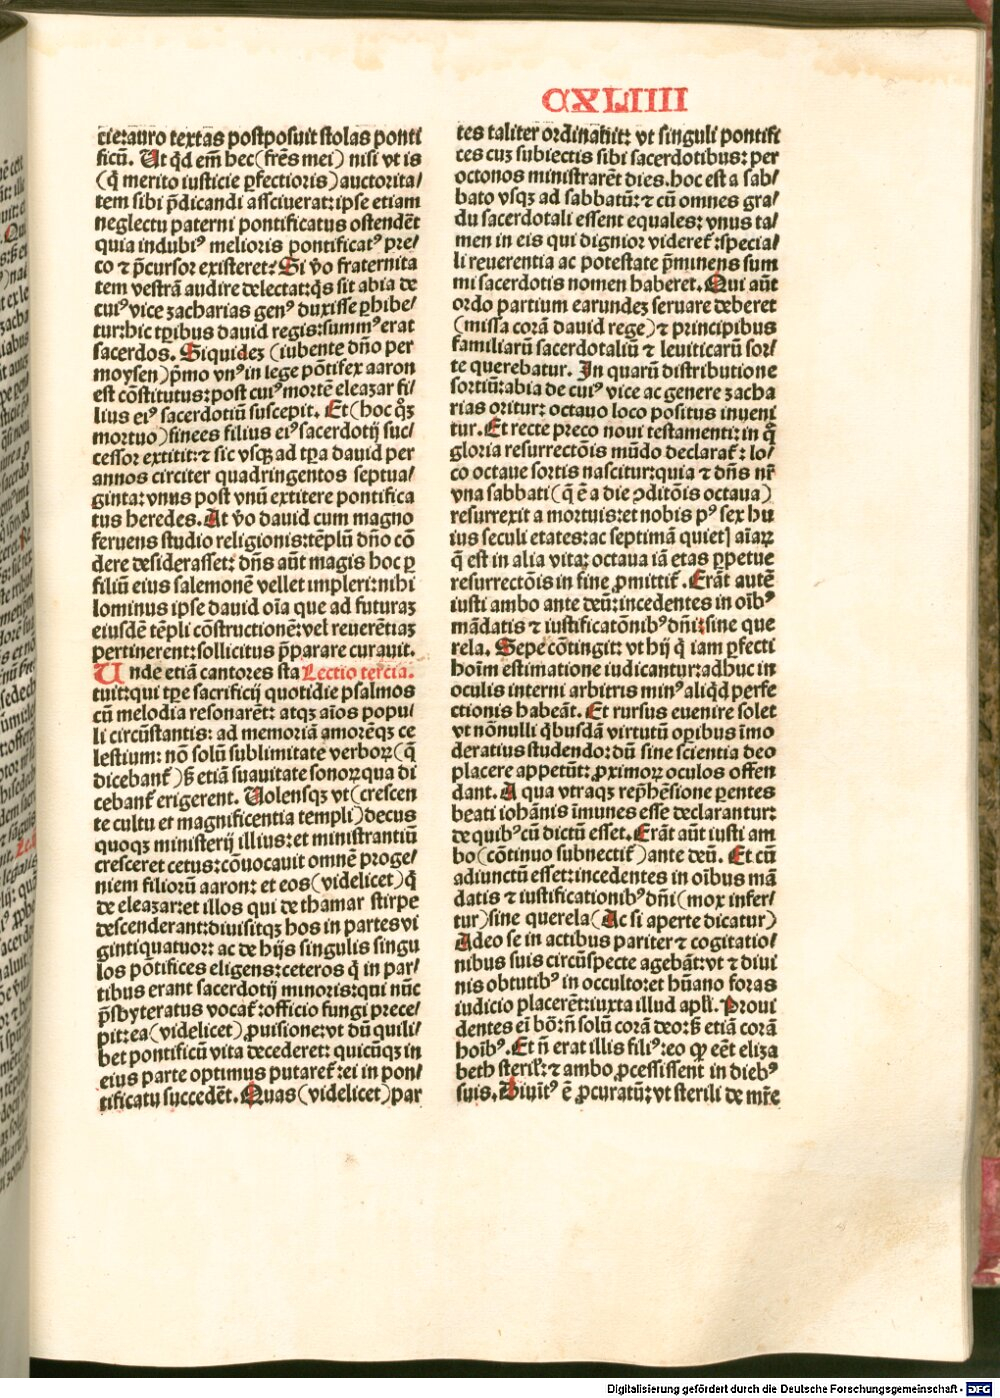 CXLIIII
cie: auro textas postposuit stolas ponti
ficũ. Ut qḋ em̃ hec (fr̃es mei) nisi vt is
(q̇ merito iusticie ꝑfectioris) auctorita/
tem sibi p̃dicandi assciuerat: ipse etiam
neglectu paterni pontificatus ostendẽt
quia indubiꝰ melioris pontificatꝰ pre/
co ⁊ p̃cursor existeret: Si v̉o fraternita
tem vestrã audire delectat: q̇s sit abia de
cuiꝰ vice zacharias genꝰ duxisse ꝑhibe/
tur: hic tp̃ibus dauid regis: summꝰ erat
sacerdos. Siquidez (iubente dño per
moysen) p̃mo vnꝰ in lege põtifex aaron
est cõstitutus: post cuiꝰ mortẽ eleazar fi/
lius eiꝰ sacerdotiũ suscepit. Et (hoc qꝫ
mortuo) finees filius eiꝰ sacerdotij suc/
cessor extitit: ⁊ sic vsqꝫ ad tp̃a dauid per
annos circiter quadringentos septua/
ginta: vnus post vnũ extitere pontifica
tus heredes. At v̉o dauid cum magno
feruens studio religionis: tẽplũ dño cõ
dere desiderasset: dñs aũt magis hoc ꝑ
filiũ eius salemonẽ vellet impleri: nihi
lominus ipse dauid oĩa que ad futuraꝫ
eiusdẽ tẽpli cõstructionẽ: vel reuerẽtiaꝫ
pertinerent: sollicitus p̃parare curauit.
Unde etiã cantores sta Lectio tercia.
tuit: qui tp̃e sacrificij quotidie psalmos
cũ melodia resonarẽt: atqꝫ aĩos popu/
li circũstantis: ad memoriã amorẽqꝫ ce
lestium: nõ solũ sublimitate verboꝝ (q̃
dicebant̃) sꝫ etiã suauitate sonoꝝ qua di
cebant̃ erigerent. Uolensqꝫ vt (crescen
te cultu et magnificentia templi) decus
quoqꝫ ministerij illius: et ministrantiũ
cresceret cetus: cõuocauit omnẽ proge/
niem filiorũ aaron: et eos (videlicet) q̇
de eleazar: et illos qui de thamar stirpe
descenderant: diuisitqꝫ hos in partes vi
gintiquatuor: ac de hijs singulis singu
los põtifices eligens: ceteros q̇ in par/
tibus erant sacerdotij minoris: qui nũc
p̃sbyteratus vocat̃: officio fungi prece/
pit: ea (videlicet) ꝓuisione: vt dũ quili/
bet pontificũ vita decederet: quicũqꝫ in
eius parte optimus putaret̃: ei in pon/
tificatu succedẽt. Quas (videlicet) par
tes taliter ordinauit: vt singuli pontifi
ces cuꝫ subiectis sibi sacerdotibus: per
octonos ministrarẽt dies. hoc est a sab/
bato vsqꝫ ad sabbatũ: ⁊ cũ omnes gra/
du sacerdotali essent equales: vnus ta/
men in eis qui dignior videret̃: specia/
li reuerentia ac potestate p̃minens sum
mi sacerdotis nomen haberet. Qui aũt
ordo partium earundeꝫ seruare deberet
(missa corã dauid rege) ⁊ principibus
familiarũ sacerdotaliũ ⁊ leuiticarũ sor/
te querebatur. In quarũ distributione
sortiũ: abia de cuiꝰ vice ac genere zacha
rias oritur: octauo loco positus inueni
tur. Et recte preco noui testamenti: in q̃
gloria resurrectõis mũdo declarat̃: lo/
co octaue sortis nascitur: quia ⁊ dñs nr̃
vna sabbati (q̃ ẽ a die ꝯditõis octaua)
resurrexit a mortuis: et nobis pꝰ sex hu
ius seculi etates: ac septimã quieti aĩaꝝ
q̃ est in alia vita: octaua iã etas ꝑpetue
resurrectõis in fine ꝓmittit̃. Erãt autẽ
iusti ambo ante deũ: incedentes in oĩbꝰ
mãdatis ⁊ iustificatõnibꝰ dñi: sine que
rela. Sepe cõtingit: vt hij q̇ iam ꝑfecti
hoĩm estimatione iudicantur: adhuc in
oculis interni arbitris minꝰ aliqḋ perfe
ctionis habeãt. Et rursus euenire solet
vt nõnulli q̇busdã virtutũ oꝑibus ĩmo
deratius studendo: dũ sine scientia deo
placere appetũt: ꝓximoꝝ oculos offen
dant. A qua vtraqꝫ rep̃hẽsione ꝑentes
beati iohãnis ĩmunes esse declarantur:
de quibꝰ cũ dictũ esset. Erãt aũt iusti am
bo (cõtinuo subnectit̃) ante deũ. Et cũ
adiunctũ esset: incedentes in oĩbus mã
datis ⁊ iustificationibꝰ dñi (mox infer/
tur) sine querela (Ac si aperte dicatur)
Adeo se in actibus pariter ⁊ cogitatio/
nibus suis circũspecte agebãt: vt ⁊ diui
nis obtutibꝰ in occulto: et hũano foras
iudicio placerẽt: iuxta illud apl̃i. Proui
dentes em̃ bõ: ñ solũ corã deo: sꝫ etiã corã
hoĩbꝰ. Et ñ erat illis filiꝰ: eo ꝙ eẽt eliza
beth steril̃: ⁊ ambo ꝓcessissent in diebꝰ
suis. Diuĩtꝰ ẽ ꝓcuratũ: vt sterili de mr̃e
Digitalisierung gefördert durch die Deutsche Forschungsgemeinschaft - DFG